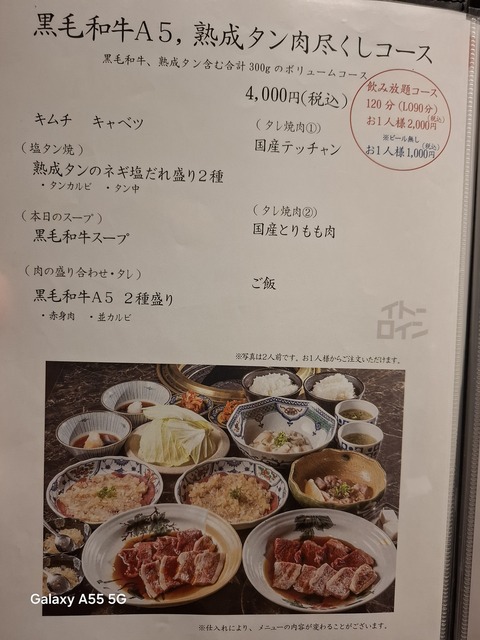 黒毛和牛A5,熟成タン肉尽くしコース
黒毛和牛、熟成タン含む合計300gのボリュームコース
4,000円(税込)
飲み放題コース
120分(LO90分)
(税込)
お1人様2,000円
※ビール無し
(税込)
お1人様1,000円
キムチ キャベツ
(塩タン焼)
熟成タンのネギ塩だれ盛り2種
・タンカルビ ・タン中
(本日のスープ)
黒毛和牛スープ
(肉の盛り合わせ・タレ)
黒毛和牛A5 2種盛り
・赤身肉 ・並カルビ
(タレ焼肉①)
国産テッチャン
(タレ焼肉②)
国産とりもも肉
ご飯
イトー
ロイン
※写真は2人前です。お1人様からご注文いただけます。
Galaxy A55 5G
※仕入れにより、メニューの内容が変わることがございます。